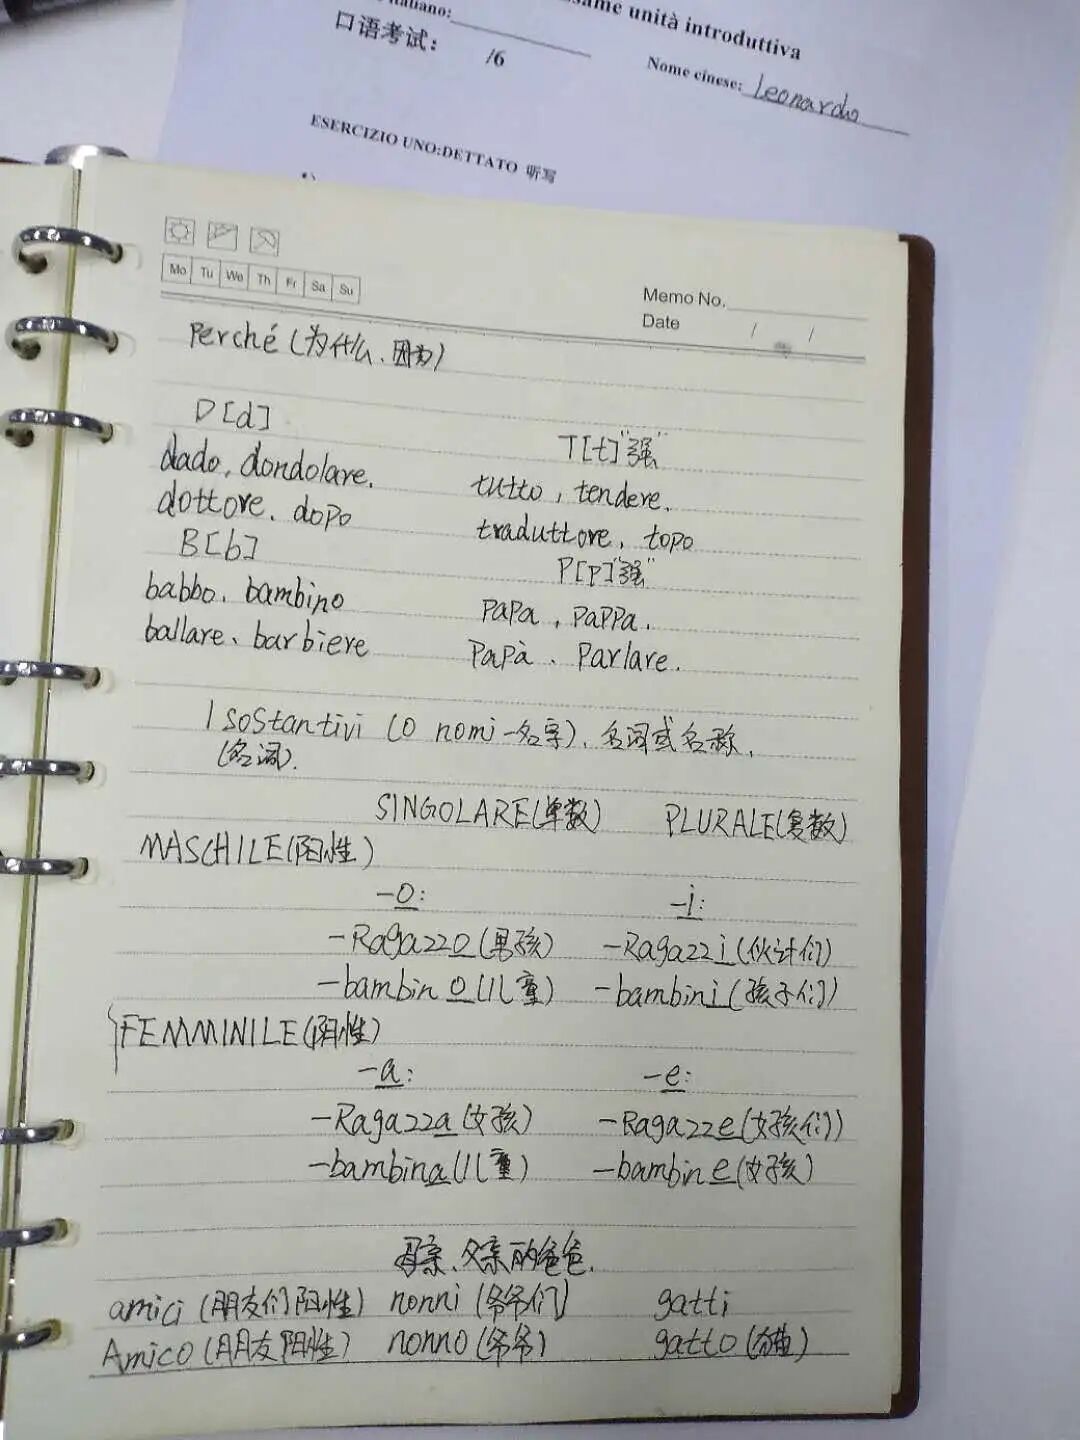 esame unità introduttiva
italiano:
口语考试： /6
Nome cinese: Leonardo
ESERCIZIO UNO:DETTATO 听写
Mo Tu We Th Fr Sa Su
Memo No.
Date / /
Perché (为什么、因为)
D[d]
T[t]"强"
dado、dondolare、
tutto , tendere、
dottore、dopo
traduttore、topo
B[b]
P[p]"强"
babbo、bambino
papa , pappa、
ballare、barbiere
papà、parlare.
I sostantivi (o nomi-名字)、名词或名称、
(名词).
SINGOLARE(单数) PLURALE(复数)
MASCHILE(阳性)
-o: -i:
-Ragazzo(男孩) -Ragazzi(伙计们)
-bambino(儿童) -bambini(孩子们)
FEMMINILE(阴性)
-a: -e:
-Ragazza(女孩) -Ragazze(女孩们)
-bambina(儿童) -bambine(女孩)
母亲、父亲的爸爸.
amici (朋友们阳性) nonni (爷爷们) gatti
Amico (朋友阳性) nonno (爷爷) gatto (猫)